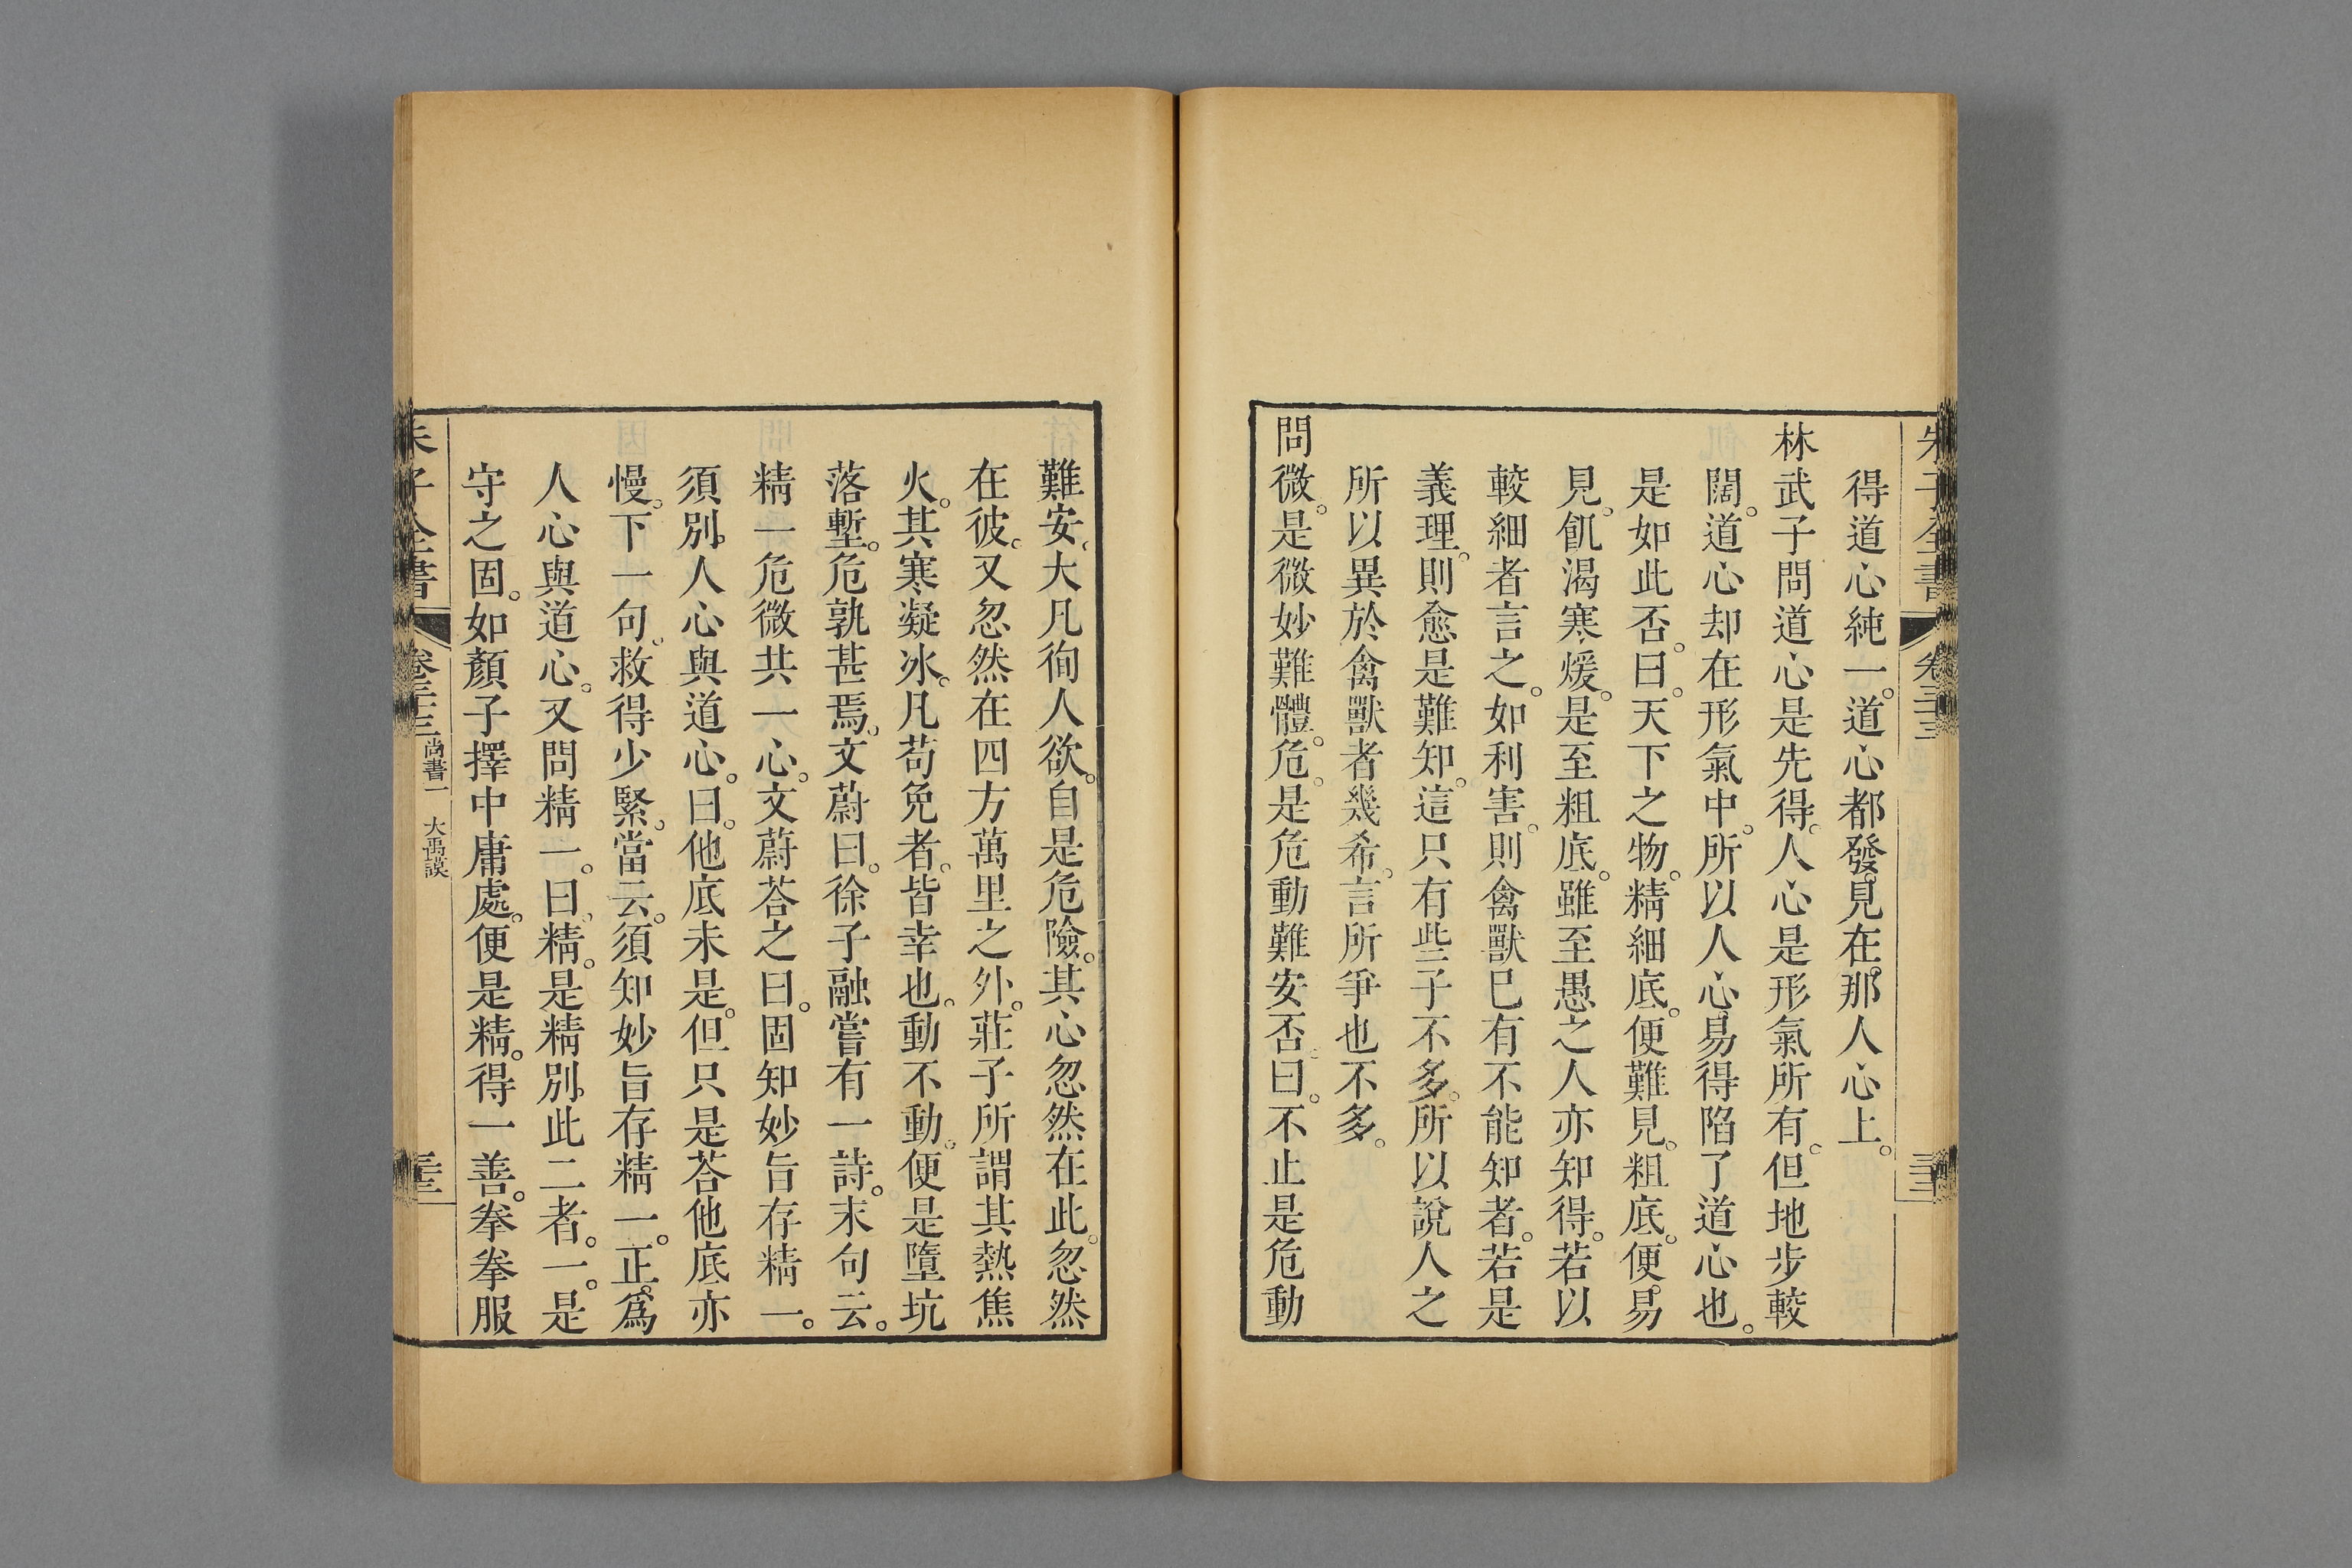 朱子全書 卷三十三 三十三
得道心純一。道心都發見在那人心上。
林武子問道心是先得。人心是形氣所有。但地步較
闊。道心却在形氣中。所以人心易得陷了道心也。
是如此否。曰。天下之物。精細底。便難見。粗底。便易
見。飢渴寒煖。是至粗底。雖至愚之人亦知得。若以
較細者言之。如利害。則禽獸已有不能知者。若是
義理。則愈是難知。這只有些子不多。所以說人之
所以異於禽獸者幾希。言所爭也不多。
問微。是微妙難體。危。是危動難安否。曰。不止是危動
難安。大凡徇人欲。自是危險。其心忽然在此。忽然
在彼。又忽然在四方萬里之外。莊子所謂其熱焦
火。其寒凝冰。凡苟免者。皆幸也。動不動。便是墮坑
落塹。危孰甚焉。文蔚曰。徐子融嘗有一詩。末句云。
精一危微共一心。文蔚荅之曰。固知妙旨存精一。
須別人心與道心。曰。他底未是。但只是荅他底亦
慢。下一句。救得少緊。當云。須知妙旨存精一。正爲
人心與道心。又問精一。曰。精。是精別此二者。一。是
守之固。如顏子擇中庸處。便是精。得一善。拳拳服
朱子全書 卷三十三 尚書一 大禹謨 三十三